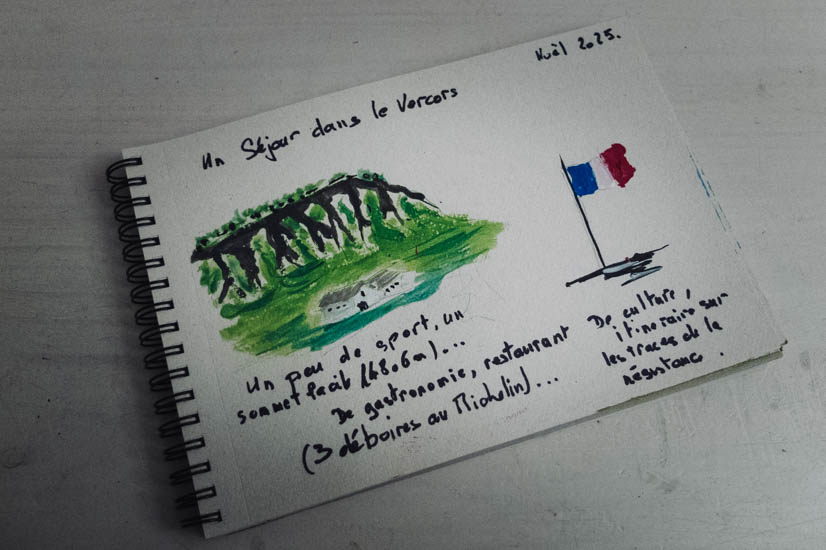 Noël 2025.
Un Séjour dans le Vercors
Un peu de sport, un
sommet facile (4806m)...
De gastronomie, restaurant
(3 déboires au Michelin)...
De culture,
itinéraire sur
les traces de la
résistance.